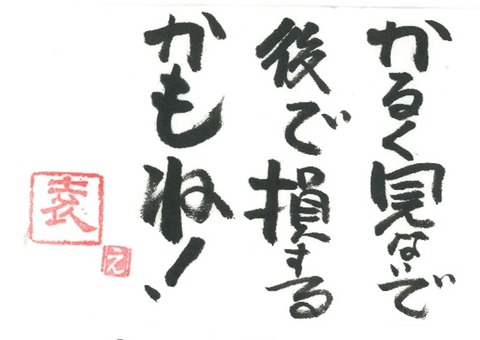 かるく見ないで
後で損する
かもね!
え